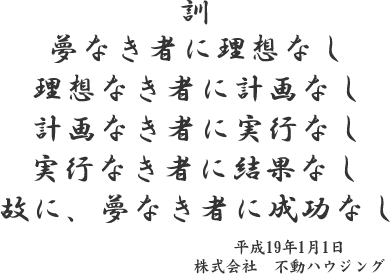 訓
夢なき者に理想なし
理想なき者に計画なし
計画なき者に実行なし
実行なき者に結果なし
故に、夢なき者に成功なし
平成19年1月1日
株式会社　不動ハウジング